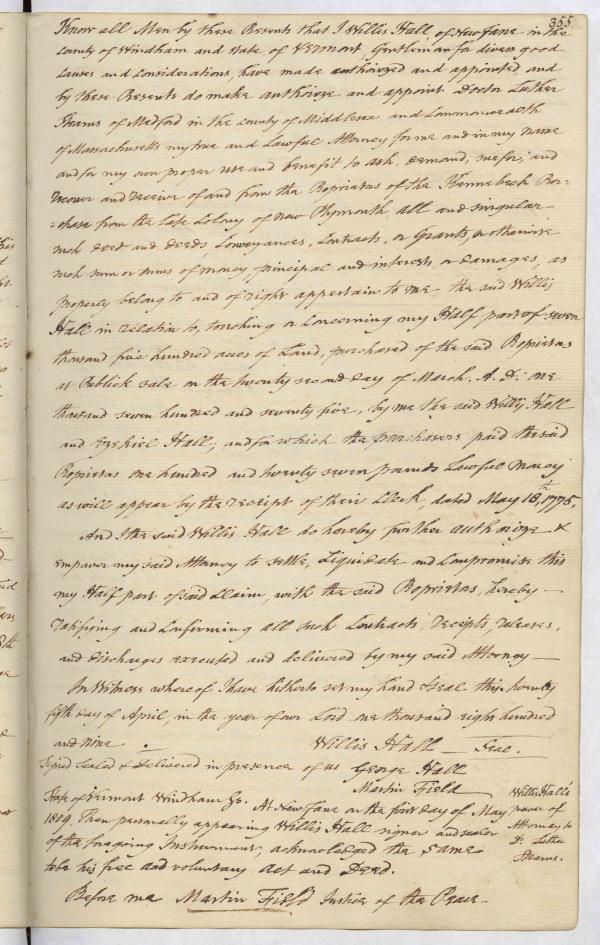 355
Know all Men by these Presents that I Willis Hall, of New Fane in the
County of Windham and state of Vermont, Gentleman for divers good
causes and considerations, have made authorized and appointed and
by these Presents do make authorize and appoint Doctor Luther
Stearns of Medford in the County of Middlesex and Commonwealth
of Massachusetts my true and Lawful Attorney for me and in my name
and for my own proper use and benefit to ask, demand, sue for, and
recover and receive of and from the Proprietors of the Kennebeck Pur=
=chase from the late Colony of New Plymouth, all and singular
such deed and deeds Conveyances, Contracts, or Grants, or otherwise
such sum or sums of money, principal and interest, or damages, as
properly belong to and of right appertain to me the said Willis
Hall in relation to, touching or concerning my Half part of seven
thousand five hundred acres of Land, purchased of the said Proprietors
at Publick sale on the twenty second day of March. A. D: one
thousand seven hundred and seventy five, by me the said Willis Hall
and Ezekiel Hall; and for which the purchasers paid the said
Proprietors one hundred and twenty seven pounds Lawful money
as will appear by the receipt of their Clerk, dated May 18th, 1775.
And I the said Willis Hall do hereby further authorize &
empower my said Attorney to settle, Liquidate and Compromise this
my Half part of said Claim, with the said Proprietors, hereby —
ratifying and Confirming all such Contracts, receipts, releases,
and discharges executed and delivered by my said Attorney —
In Witness whereof I have hitherto set my hand & seal this twenty
fifth day of April, in the year of our Lord one thousand eight hundred
and nine. Willis Hall — Seal.
Signed Sealed & Delivered in presence of us George Hall
Martin Field
State of Vermont Windham Ss. At New Fane on the first day of May
1809. Then personally appearing Willis Hall signer and sealer
of the foregoing Instrument, acknowledged the same
to be his free and voluntary Act and Deed.
Before me Martin Field Justice of the Peace —
Willis Hall's
power of
Attorney to
Dr. Luther
Stearns.